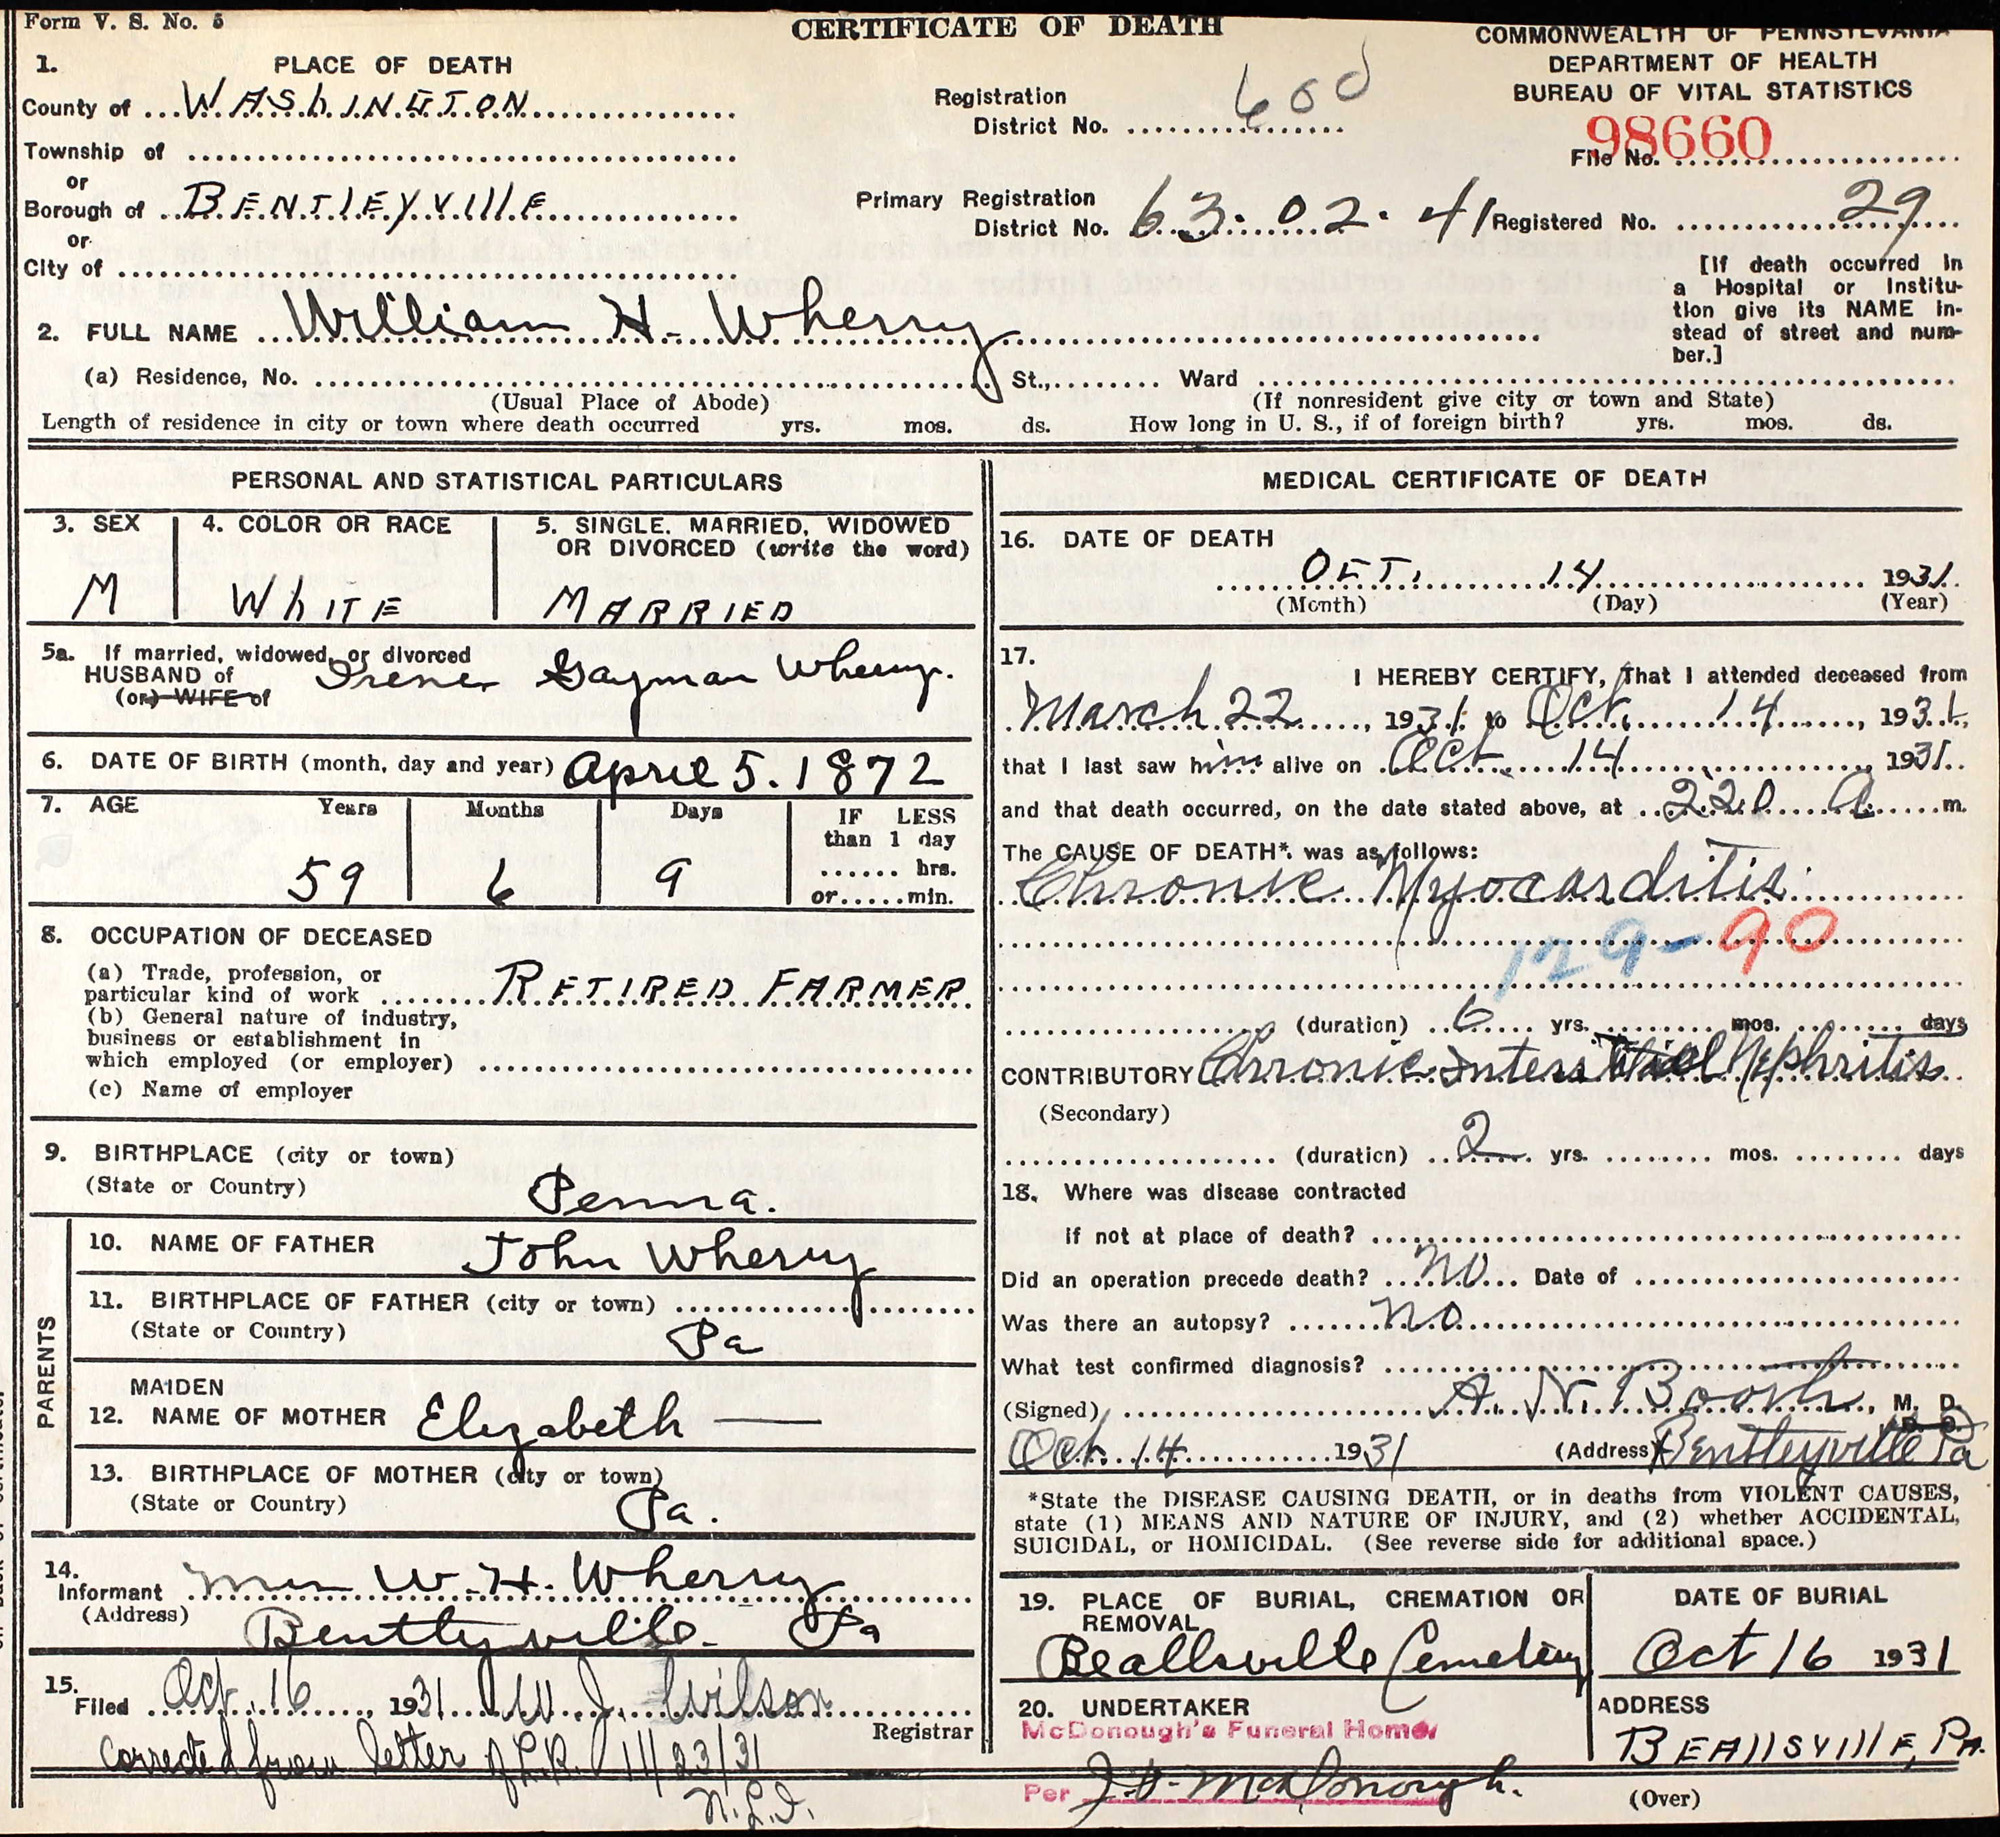 Form V. S. No. 5
CERTIFICATE OF DEATH
COMMONWEALTH OF PENNSYLVANIA
DEPARTMENT OF HEALTH
BUREAU OF VITAL STATISTICS
1. PLACE OF DEATH
County of WAShINGTON
Registration District No. 600
98660
File No.
Township of
or
Borough of BENTlEYVIllE
Primary Registration District No. 63-02-41
Registered No. 29
or
City of
[If death occurred in
a Hospital or Institu-
tion give its NAME in-
stead of street and num-
ber.]
2. FULL NAME William H. Wherry
(a) Residence, No. St., Ward
(Usual Place of Abode) (If nonresident give city or town and State)
Length of residence in city or town where death occurred yrs. mos. ds. How long in U. S., if of foreign birth? yrs. mos. ds.
PERSONAL AND STATISTICAL PARTICULARS
3. SEX
M
4. COLOR OR RACE
WhITE
5. SINGLE, MARRIED, WIDOWED
OR DIVORCED (write the word)
MARRIED
5a. If married, widowed, or divorced
HUSBAND of Irene Gayman Wherry.
(or) WIFE of
6. DATE OF BIRTH (month, day and year) April 5. 1872
7. AGE Years Months Days IF LESS
than 1 day
hrs.
59 6 9 or min.
8. OCCUPATION OF DECEASED
(a) Trade, profession, or
particular kind of work RETIRED FARMER
(b) General nature of industry,
business or establishment in
which employed (or employer)
(c) Name of employer
9. BIRTHPLACE (city or town)
(State or Country) Penna.
PARENTS
10. NAME OF FATHER John Wherry
11. BIRTHPLACE OF FATHER (city or town)
(State or Country) Pa
MAIDEN
12. NAME OF MOTHER Elizabeth —
13. BIRTHPLACE OF MOTHER (city or town)
(State or Country) Pa.
14.
Informant Mrs W. H. Wherry
(Address) Bentleyville. Pa
15.
Filed Oct. 16, 1931 W. J. Wilson
Registrar
Corrected from letter of L.R. 11/23/31
MEDICAL CERTIFICATE OF DEATH
16. DATE OF DEATH
OCT. 14 1931
(Month) (Day) (Year)
17. I HEREBY CERTIFY, That I attended deceased from
March 22, 1931 to Oct. 14, 1931,
that I last saw him alive on Oct. 14, 1931
and that death occurred, on the date stated above, at 220 A. m.
The CAUSE OF DEATH*, was as follows:
Chronic Myocarditis.
129-90
(duration) 6 yrs. mos. days
CONTRIBUTORY Chronic Interstitial Nephritis
(Secondary)
(duration) 2 yrs. mos. days
18. Where was disease contracted
if not at place of death?
Did an operation precede death? No Date of
Was there an autopsy? No
What test confirmed diagnosis?
(Signed) A. N. Booth, M. D.
Oct. 14 1931 (Address) Bentleyville Pa
*State the DISEASE CAUSING DEATH, or in deaths from VIOLENT CAUSES,
state (1) MEANS AND NATURE OF INJURY, and (2) whether ACCIDENTAL,
SUICIDAL, or HOMICIDAL. (See reverse side for additional space.)
19. PLACE OF BURIAL, CREMATION OR
REMOVAL
Beallsville Cemetery
DATE OF BURIAL
Oct 16 1931
20. UNDERTAKER
McDonough's Funeral Home
Per McDonough.
ADDRESS
BEAllSVIllE, PA.
(Over)